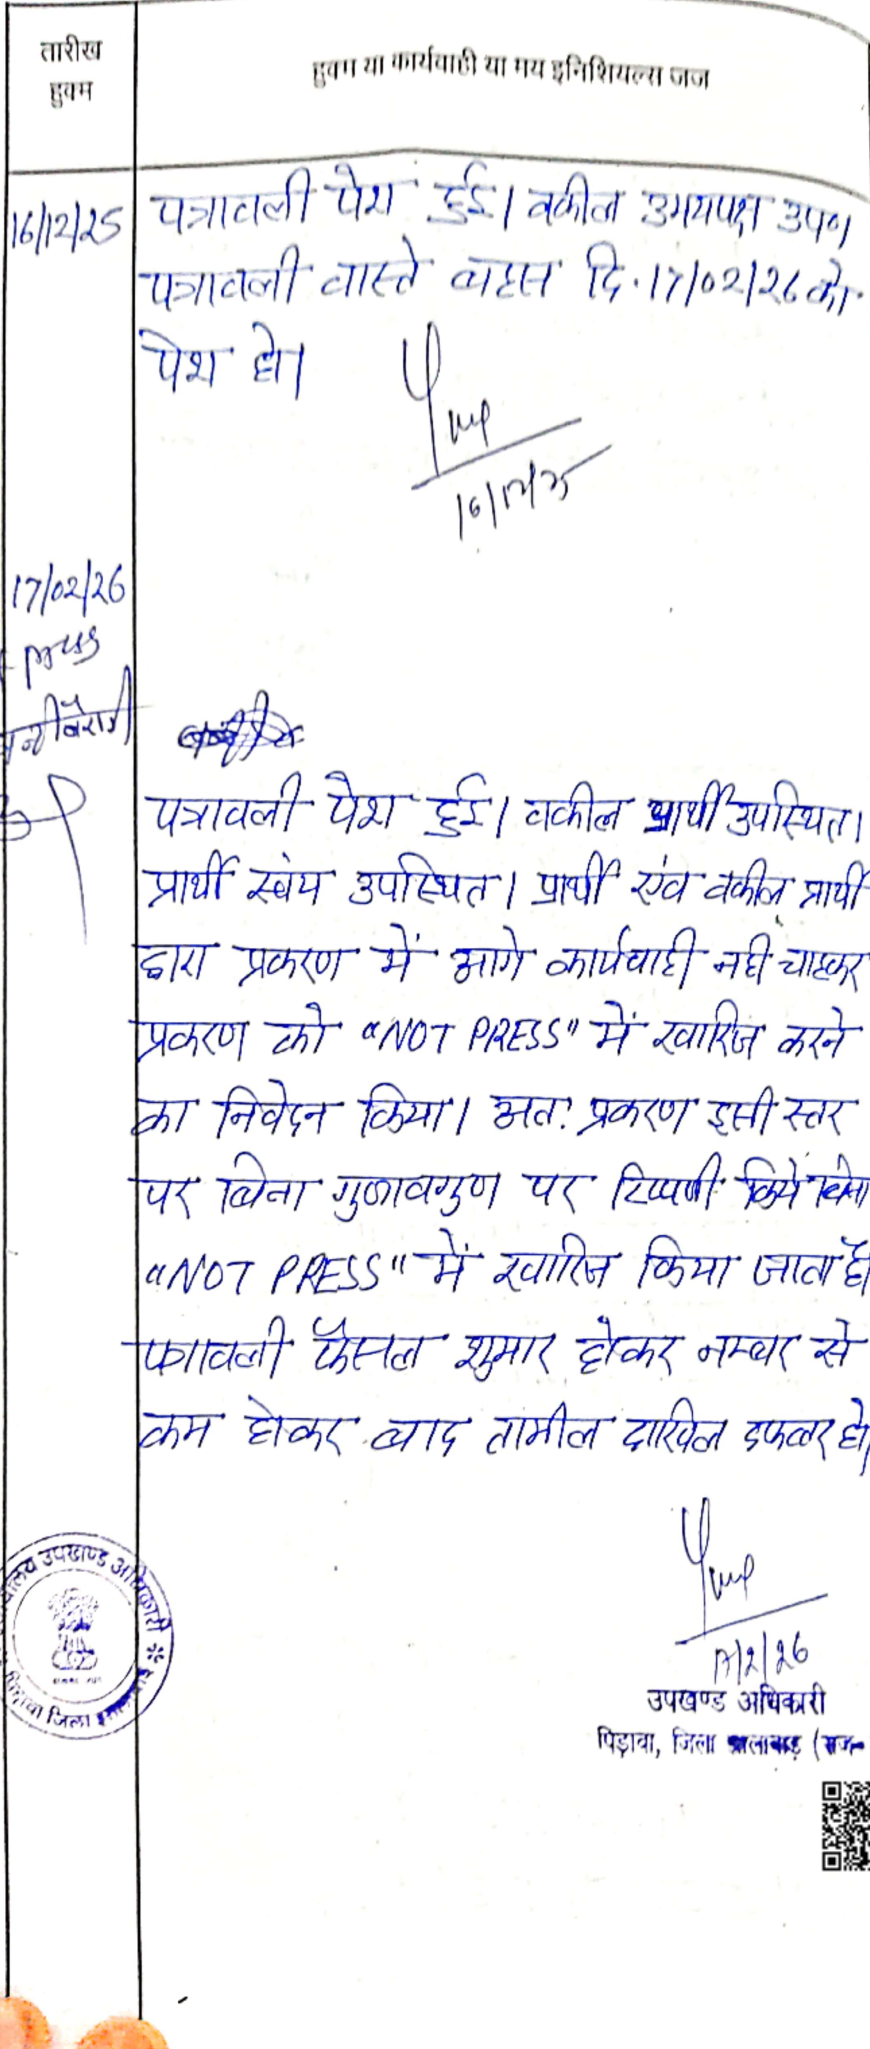 तारीख
हुक्म
हुक्म या कार्यवाही या मय इनिशियल्स जज
16/12/25
पत्रावली पेश हुई। वकील उभयपक्ष उप०।
पत्रावली वास्ते बहस दि. 17/02/26 को
पेश हो।
16/12/25
17/02/26
पत्रावली पेश हुई। वकील प्रार्थी उपस्थित।
प्रार्थी स्वंय उपस्थित। प्रार्थी एंव वकील प्रार्थी
द्वारा प्रकरण में आगे कार्यवाही नही चाहकर
प्रकरण को "NOT PRESS" में खारिज करने
का निवेदन किया। अतः प्रकरण इसी स्तर
पर बिना गुणावगुण पर टिप्पणी किये बिना
"NOT PRESS" में खारिज किया जाता है।
पत्रावली फैसल शुमार होकर नम्बर से
कम होकर बाद तामील दाखिल दफ्तर हो।
17/2/26
उपखण्ड अधिकारी
पिड़ावा, जिला झालावाड़ (राज०
उपखण्ड अधिकारी
पिड़ावा जिला